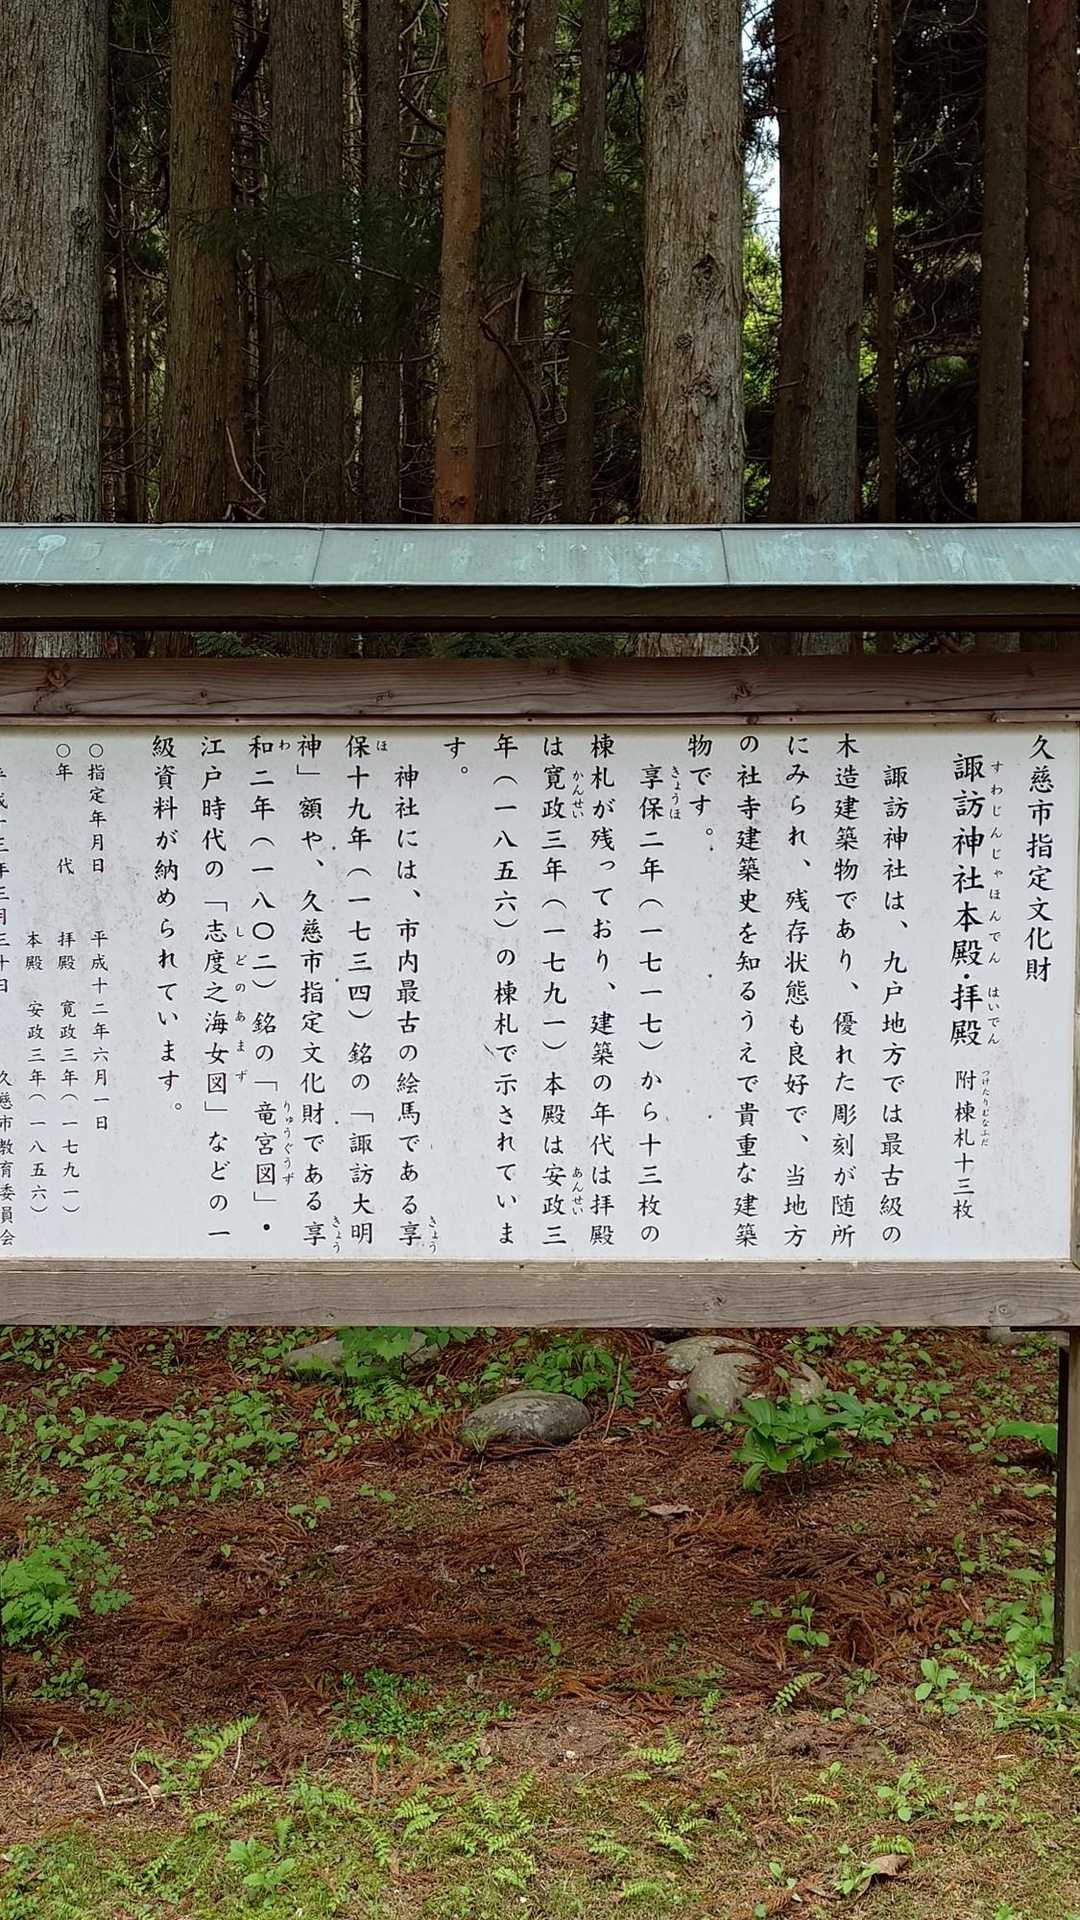 久慈市指定文化財
すわじんじゃほんでん はいでん つけたりむなふだ
諏訪神社本殿・拝殿 附棟札十三枚
諏訪神社は、九戸地方では最古級の
木造建築物であり、優れた彫刻が随所
にみられ、残存状態も良好で、当地方
の社寺建築史を知るうえで貴重な建築
物です。
きょうほ
享保二年（一七一七）から十三枚の
棟札が残っており、建築の年代は拝殿
かんせい あんせい
は寛政三年（一七九一）本殿は安政三
年（一八五六）の棟札で示されていま
す。
きょう
神社には、市内最古の絵馬である享
ほ
保十九年（一七三四）銘の「諏訪大明
きょう
神」額や、久慈市指定文化財である享
わ りゅうぐうず
和二年（一八〇二）銘の「竜宮図」・
しどのあまず
江戸時代の「志度之海女図」などの一
級資料が納められています。
〇指定年月日 平成十二年六月一日
〇年代 拝殿 寛政三年（一七九一）
本殿 安政三年（一八五六）
成十三年三月三十日 久慈市教育委員会